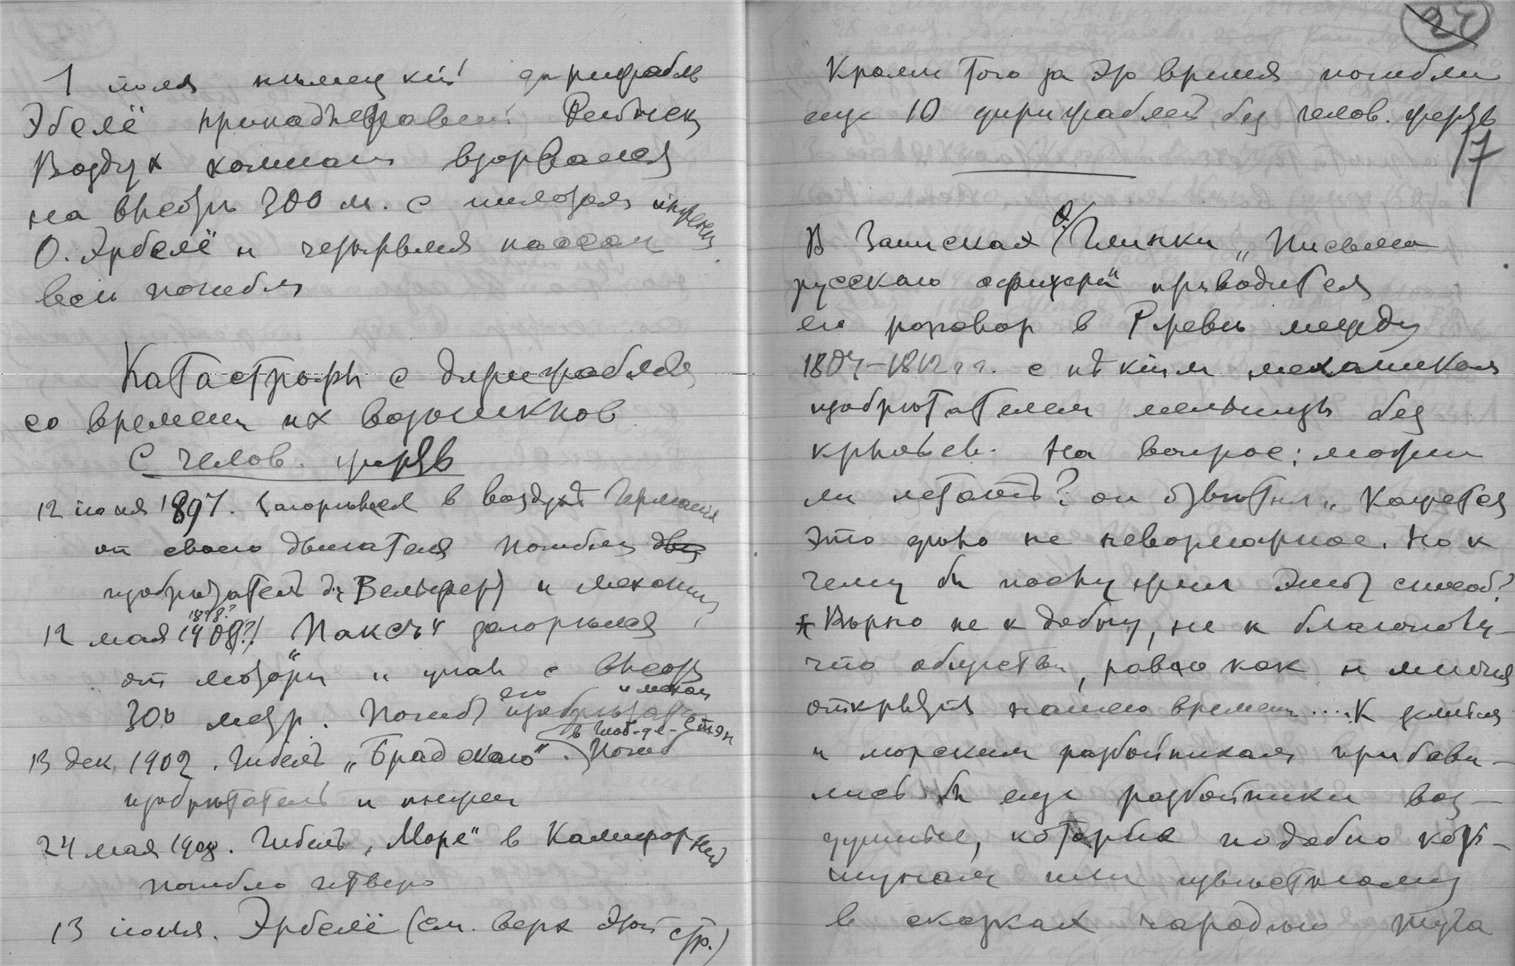 1 июля нѣмецкій дирижабль
Эрбслё принадлежавшій Рейнск
Воздух компаніи взорвался
на высотѣ 300 м. с пилотом инжен
О. Эрбслё и четырьмя пассаж
всѣ погибли
Катастрофы с дирижаблям
со времени их возникнов
С челов. жертв
12 іюня 1897. Загорѣлся в воздухѣ Германія
от своего двигателя погибли
изобрѣтатель д-р Вельферт и механик
1898?
12 мая 1908?! "Пакс" загорѣлся
от мотора и упал с высоты
300 метр. Погиб его изобрѣтатель и механ
13 дек. 1902. Гибель "Брадскаго". Погиб
изобрѣтатель и инжен
24 мая 1908. Гибель "Море" в Калифорніи
погибло четверо
13 іюля. Эрбслё (см. верх этой стр.)
24
Кромѣ того за это время погибли
еще 10 дирижаблей без челов. жертв
17
В Записках Ѳ. Глинки "Письма
русскаго офицера" приводится
его разговор в Ржевѣ между
1807–1812 гг. с нѣкіим механиком
изобрѣтателем мельницы без
крыльев. На вопрос: можно
ли летать? он отвѣтил "Кажется
это дѣло не невозможное. Но к
чему бы послужил этот способ?
Вѣрно не к добру, не к благополу-
чію общества, равно как и многія
открытія нашего времени.... К земным
и морским разбойникам прибави-
лись бы еще разбойники воз-
душные, которые подобно кор-
шунам или извѣстному
в сказках чародѣю Туга